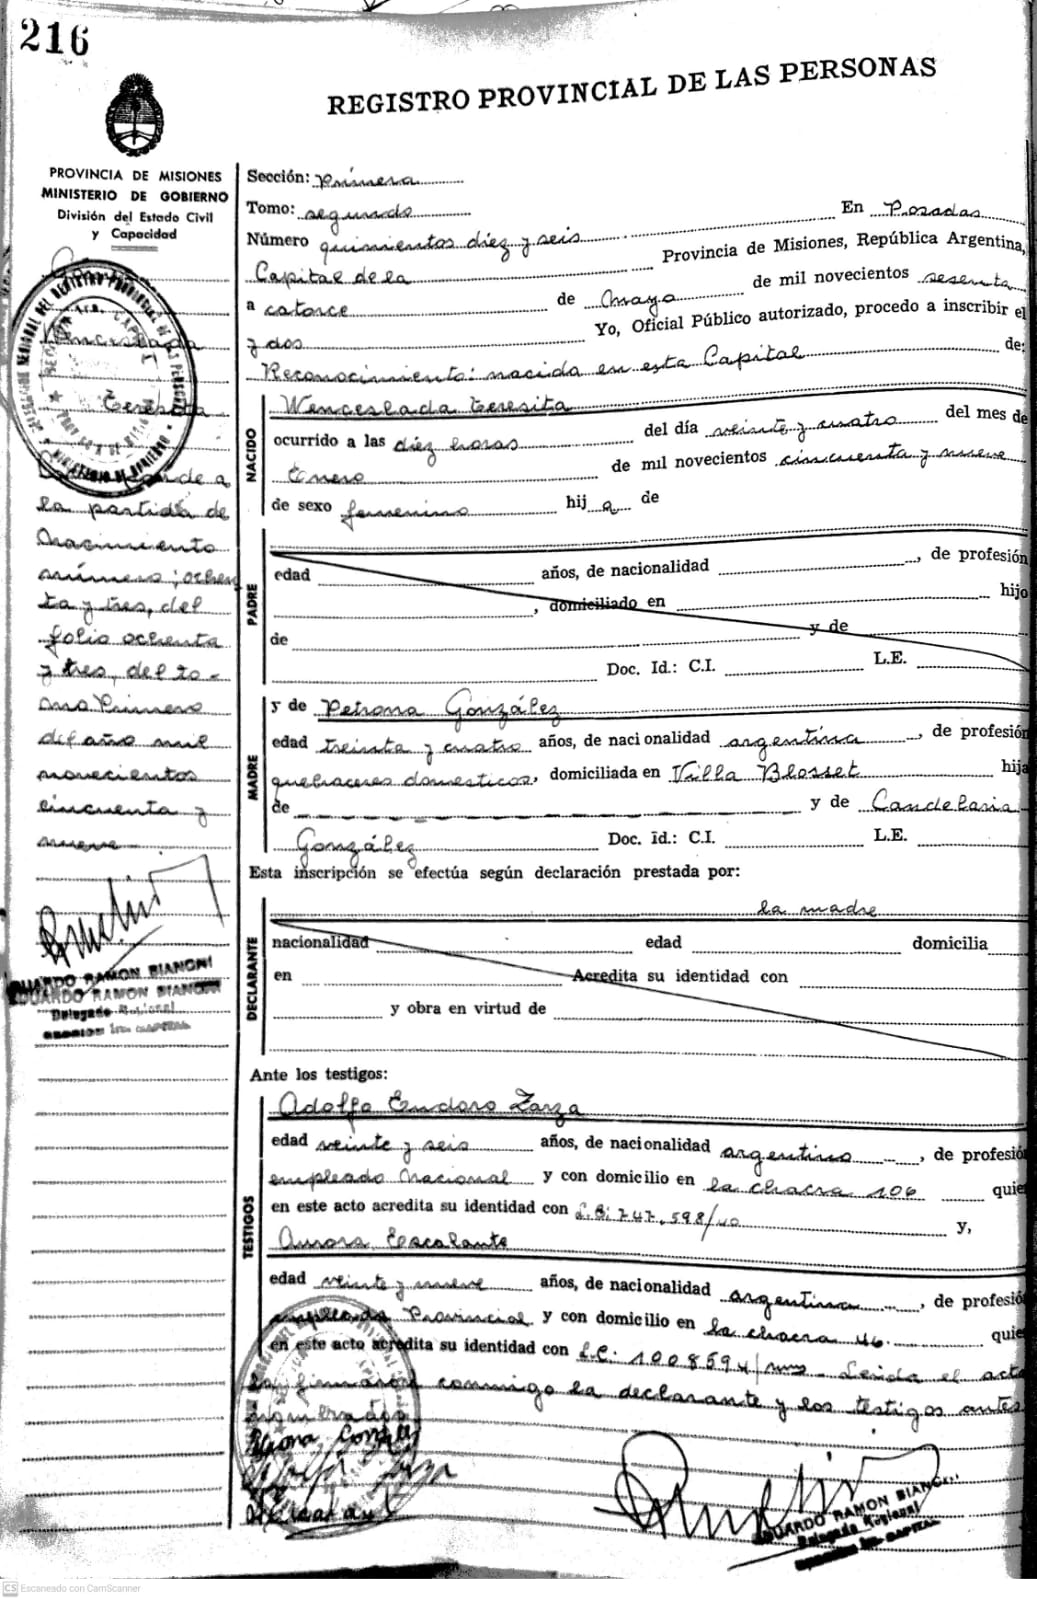 216
REGISTRO PROVINCIAL DE LAS PERSONAS
PROVINCIA DE MISIONES
MINISTERIO DE GOBIERNO
División del Estado Civil
y Capacidad
Wenceslada
Teresita
Corresponde a
la partida de
Nacimiento
número; ochen
ta y tres, del
folio ochenta
y tres, del to-
mo Primero
del año mil
novecientos
cincuenta y
nueve
EDUARDO RAMON BIANCHI
EDUARDO RAMON BIANCHI
Delegado Regional
Sección: primera
Tomo: segundo
En Posadas
Número quinientos diez y seis
Capital de la Provincia de Misiones, República Argentina,
a catorce de mayo de mil novecientos sesenta
y dos Yo, Oficial Público autorizado, procedo a inscribir el
Reconocimiento: nacida en esta Capital de:
NACIDO
Wenceslada Teresita
ocurrido a las diez horas del día veinte y cuatro del mes de
Enero de mil novecientos cincuenta y nueve
de sexo femenino hija de
PADRE
edad años, de nacionalidad , de profesión
, domiciliado en hijo
de y de
Doc. Id.: C.I. L.E.
MADRE
y de Petrona González
edad treinta y cuatro años, de nacionalidad argentina , de profesión
quehaceres domesticos, domiciliada en Villa Blosset hija
de y de Candelaria
González Doc. id.: C.I. L.E.
Esta inscripción se efectúa según declaración prestada por:
DECLARANTE
la madre
nacionalidad edad domicilia
en Acredita su identidad con
y obra en virtud de
Ante los testigos:
TESTIGOS
Adolfo Eudoro Zarza
edad veinte y seis años, de nacionalidad argentino , de profesió
empleado Nacional y con domicilio en la chacra 106 quie
en este acto acredita su identidad con 747.598/40 y,
Aurora Escalante
edad veinte y nueve años, de nacionalidad argentina , de profesió
empleada Provincial y con domicilio en la chacra 46. quie
en este acto acredita su identidad con L.C. 1008594/mns. Leída el acta
la firmaron conmigo la declarante y los testigos antes
nombrados
EDUARDO RAMON BIANCHI
Delegado Regional
CS Escaneado con CamScanner